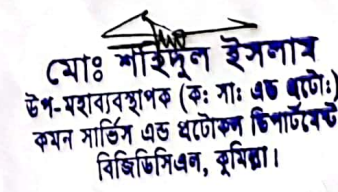 মোঃ শহিদুল ইসলাম
উপ-মহাব্যবস্থাপক (ক: সা: এন্ড প্রটো:)
কমন সার্ভিস এন্ড প্রটোকল ডিপার্টমেন্ট
বিজিডিসিএল, কুমিল্লা।